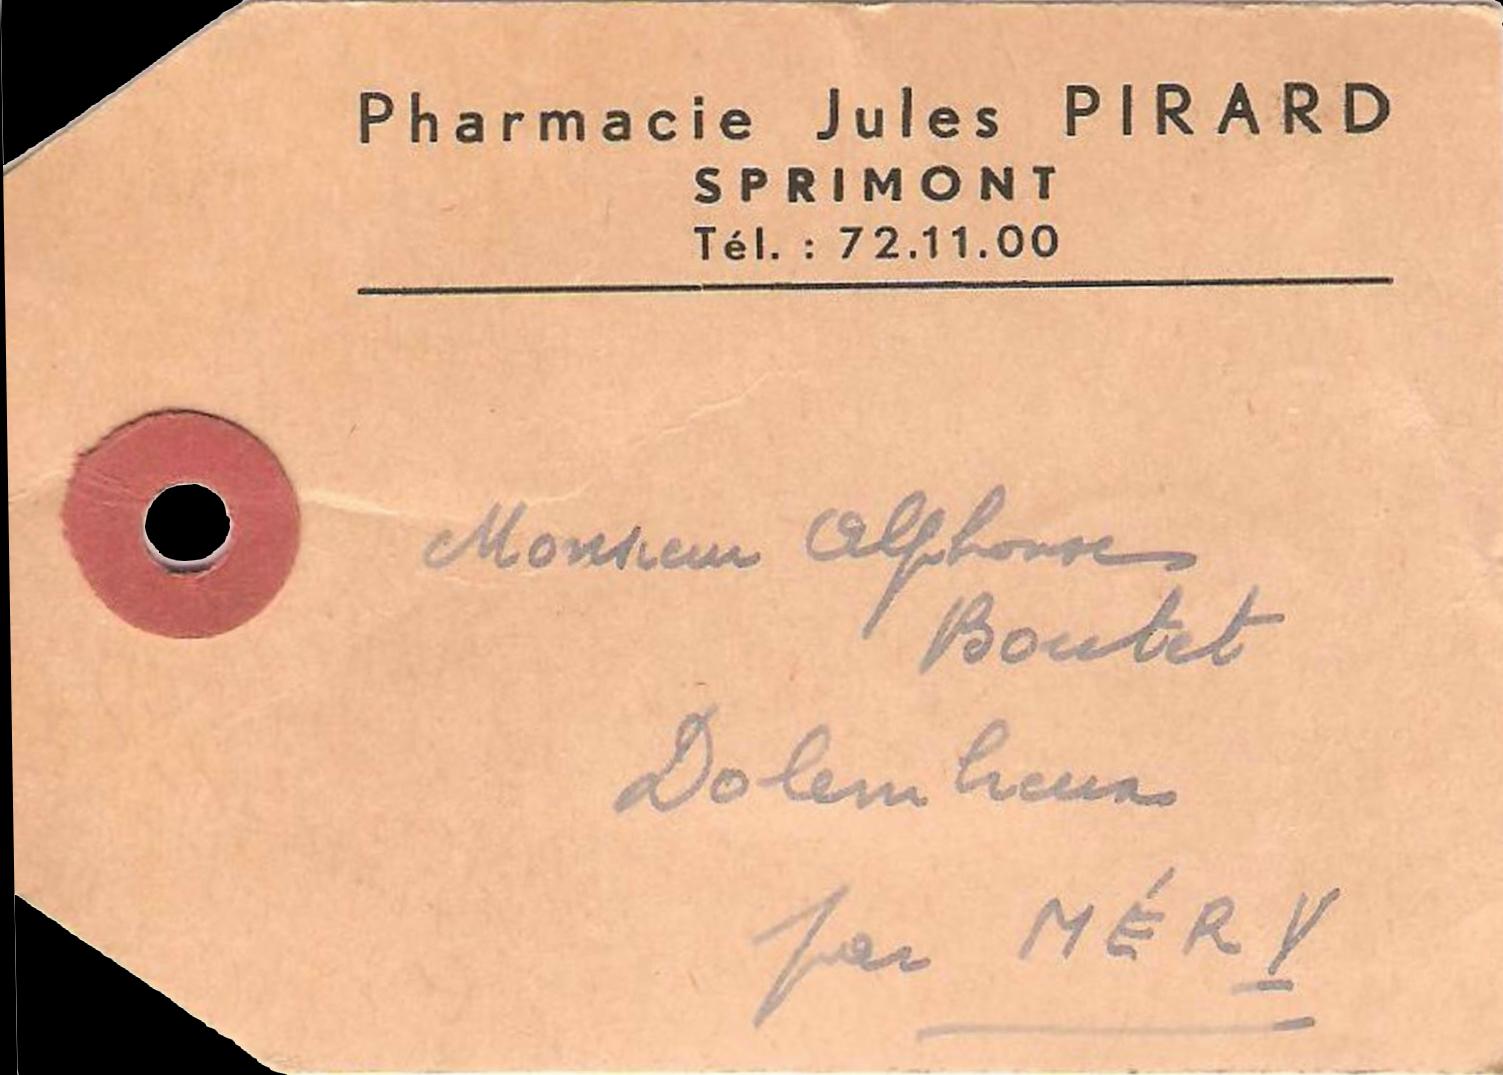 Pharmacie Jules PIRARD
SPRIMONT
Tél. : 72.11.00
Monsieur Alphonse
Boutet
Dolembreux
par MÉRY